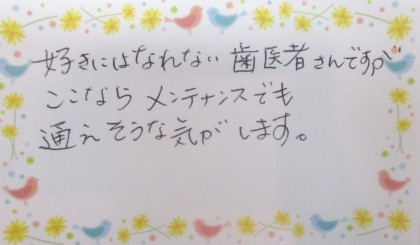 好きにはなれない歯医者さんですが
ここなら メンテナンスでも
通えそうな気がします。